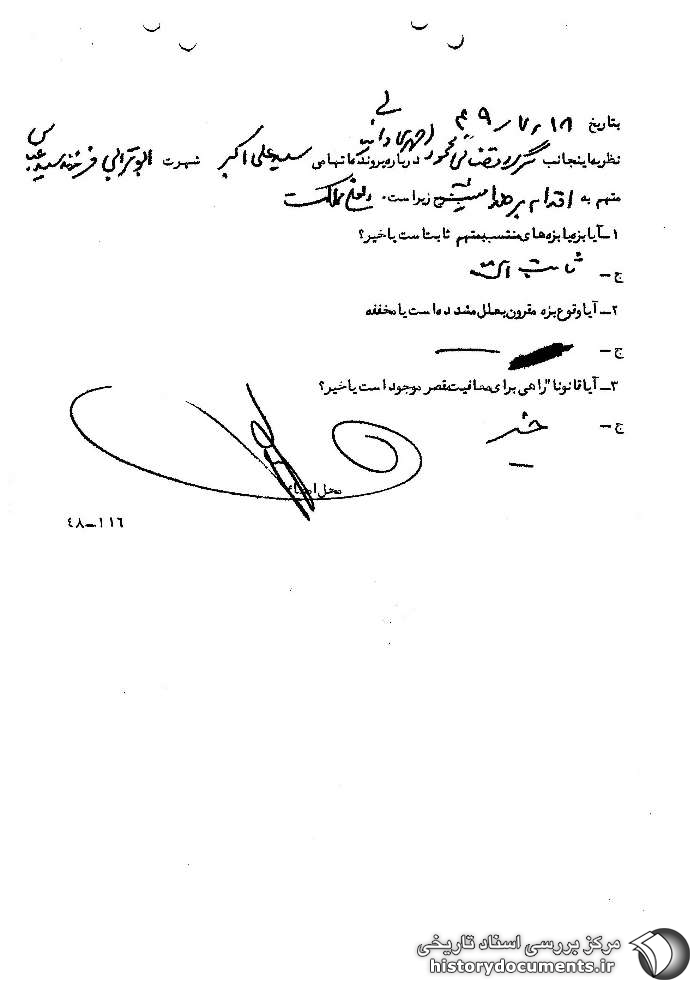 بتاریخ ۱۸ر۷ر۴۹
نظریه اینجانب سرگرد قضائی محمود درباره پرونده اتهامی سید علی اکبر شهرت ابوترابی فرزند سید عباس
متهم به اقدام بر ضد امنیت داخلی مملکت بشرح زیر است.
۱ــ آیا بزه یا بزه های منتسب بمتهم ثابت است یا خیر؟
ج ــ ثابت است
۲ــ آیا وقوع بزه مقرون بعلل مشدده است یا مخففه
ج ــ
۳ــ آیا قانونا" راهی برای معافیت مقصر موجود است یا خیر؟
ج ــ خیر
محل امضاء
۱۱٦ــ٤۸
مرکز بررسی اسناد تاریخی
historydocuments.ir